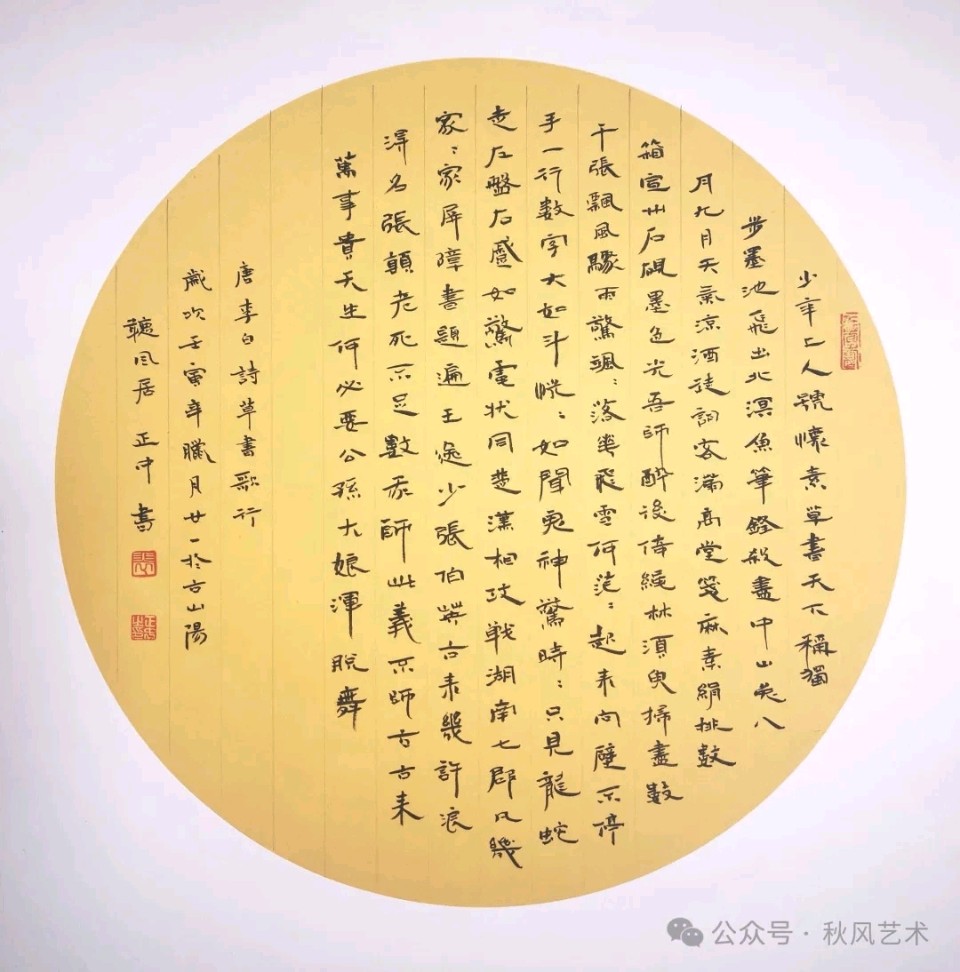 少年上人號懷素草書天下稱獨
步墨池飛出北溟魚筆鋒殺盡中山兔八
月九月天氣涼酒徒詞客滿高堂箋麻素絹排數
箱宣州石硯墨色光吾師醉後倚繩床須臾掃盡數
千張飄風驟雨驚颯:落花飛雪何茫:起来向壁不停
手一行数字大如斗怳:如聞鬼神驚時:只見龍蛇
走左盤右蹙如驚電狀同楚漢相攻戰湖南七郡凡幾
家:家屏障書題遍王逸少張伯英古来幾許浪
得名張顛老死不足數我師此義不師古古来
萬事貴天生何必要公孫大娘渾脫舞
唐李白詩草書歌行
歲次壬寅年臘月廿一於古山陽
聽風居 正中 書
公众号·秋风艺术